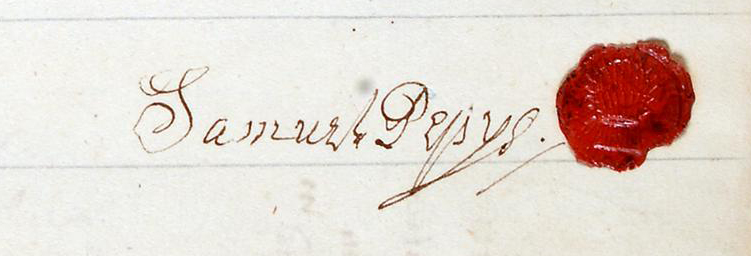 Samuel Pepys.